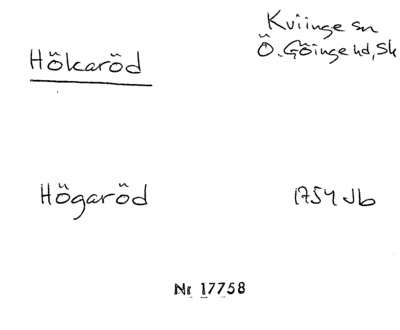 Kviinge sn
Hökaröd
Ö. Göinge hd, Sk
Högaröd
1754 Jb
Nr 17758